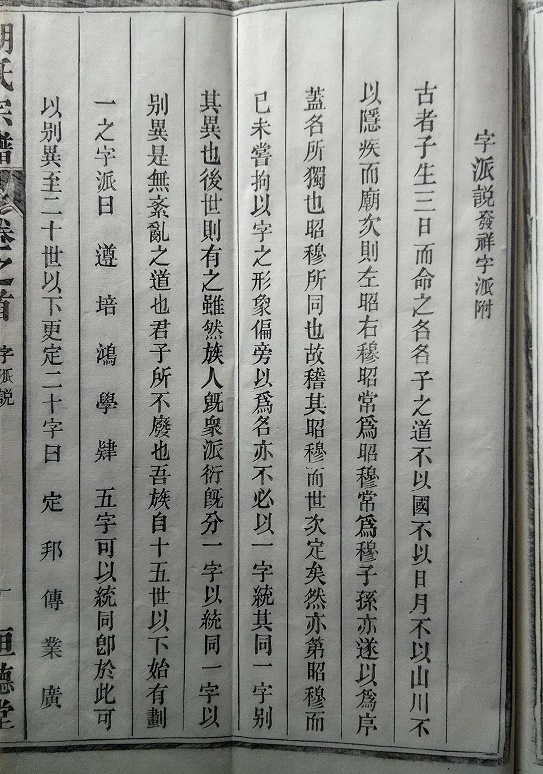 字派説發祥字派附
古者子生三日而命之各名子之道不以國不以日月不以山川不
以隱疾而廟次則左昭右穆昭常爲昭穆常爲穆子孫亦遂以爲序
蓋名所獨也昭穆所同也故稽其昭穆而世次定矣然亦第昭穆而
已未嘗拘以字之形象偏旁以爲名亦不必以一字統其同一字别
其異也後世則有之雖然族人旣衆派衍旣分一字以統同一字以
别異是無紊亂之道也君子所不廢也吾族自十五世以下始有劃
一之字派曰 遵 培 鴻 學 肄 五字可以統同卽於此可
以别異至二十世以下更定二十字曰 定 邦 傳 業 廣
胡氏宗譜 卷之首 字派説 一 恒德堂